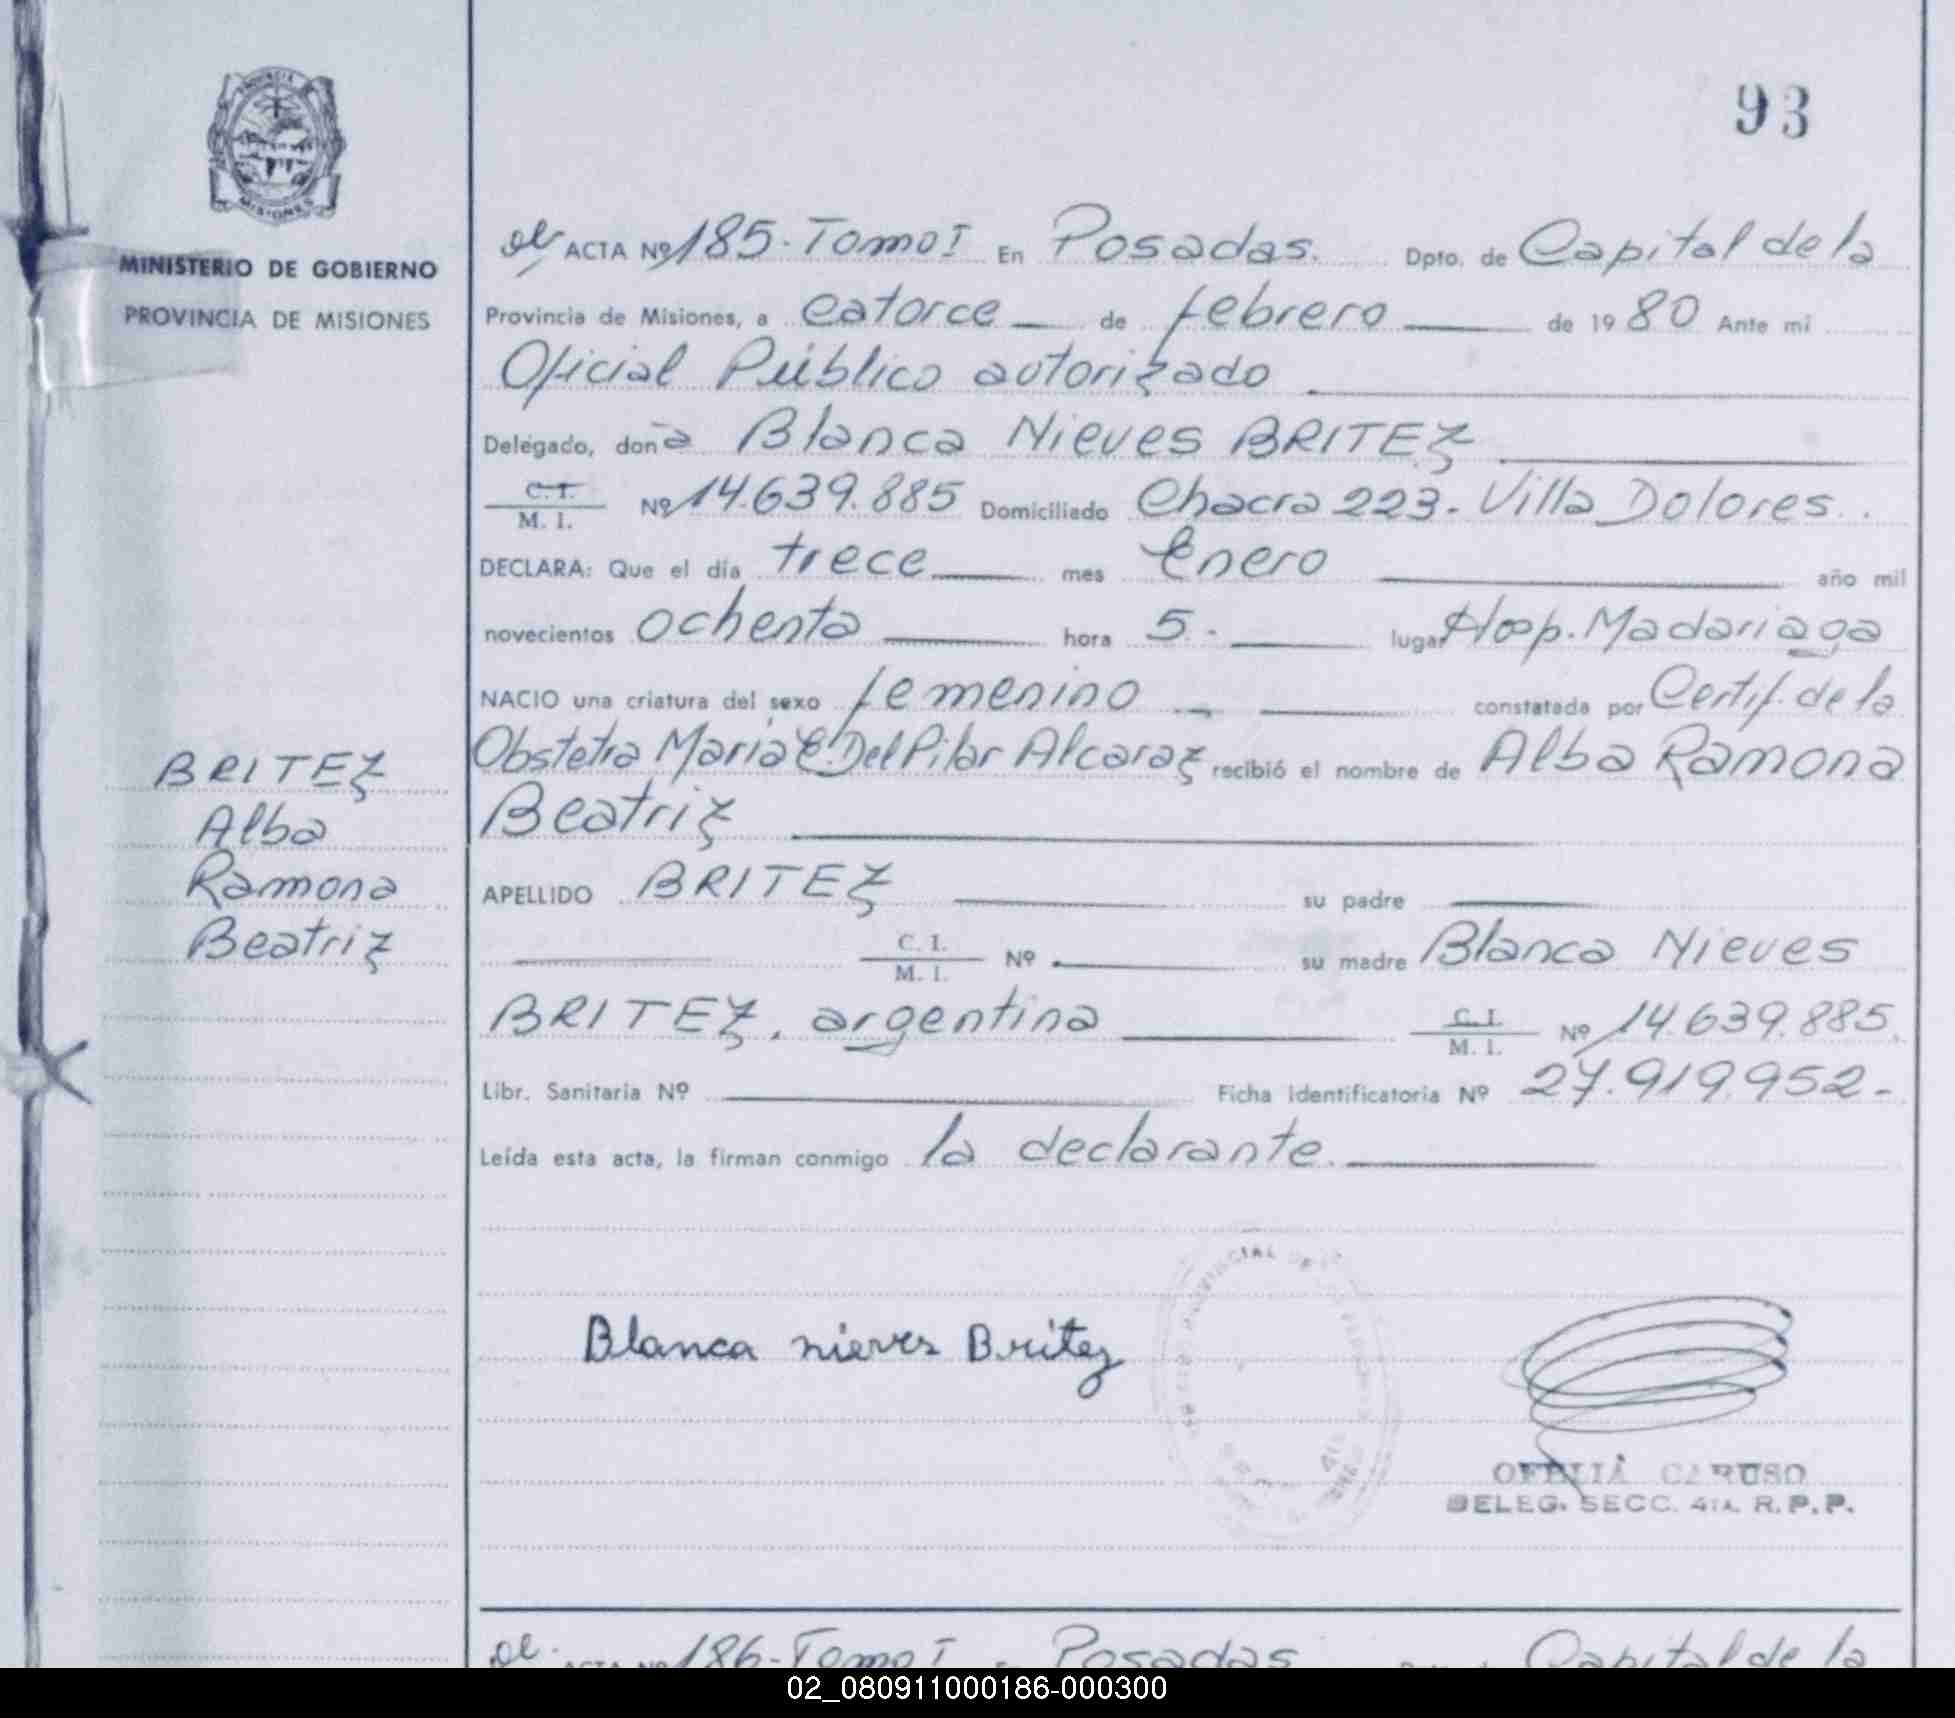 93
MISIONES
MINISTERIO DE GOBIERNO
PROVINCIA DE MISIONES
ACTA Nº 185- Tomo I En Posadas. Dpto. de Capital de la
Provincia de Misiones, a catorce de febrero de 1980 Ante mi
Oficial Público autorizado
Delegado, don a Blanca Nieves BRITEZ
C. I.
M. I. Nº 14.639.885 Domiciliado Chacra 223- Villa Dolores.
DECLARA: Que el día trece mes Enero año mil
novecientos ochenta hora 5.- lugar Hosp. Madariaga
NACIO una criatura del sexo femenino constatada por Certif. de la
Obstetra Maria E. Del Pilar Alcaraz recibió el nombre de Alba Ramona
Beatriz
BRITEZ
Alba
Ramona
Beatriz
APELLIDO BRITEZ su padre
C. I.
M. I. Nº su madre Blanca Nieves
BRITEZ, argentina C. I.
M. I. Nº 14.639.885.
Libr. Sanitaria Nº Ficha Identificatoria Nº 27.919.952-
Leída esta acta, la firman conmigo la declarante.
Blanca nieves Britez
OFELIA CARUSO
DELEG. SECC. 4TA. R.P.P.
186- Tomo I Posadas Capital de la
02_080911000186-000300